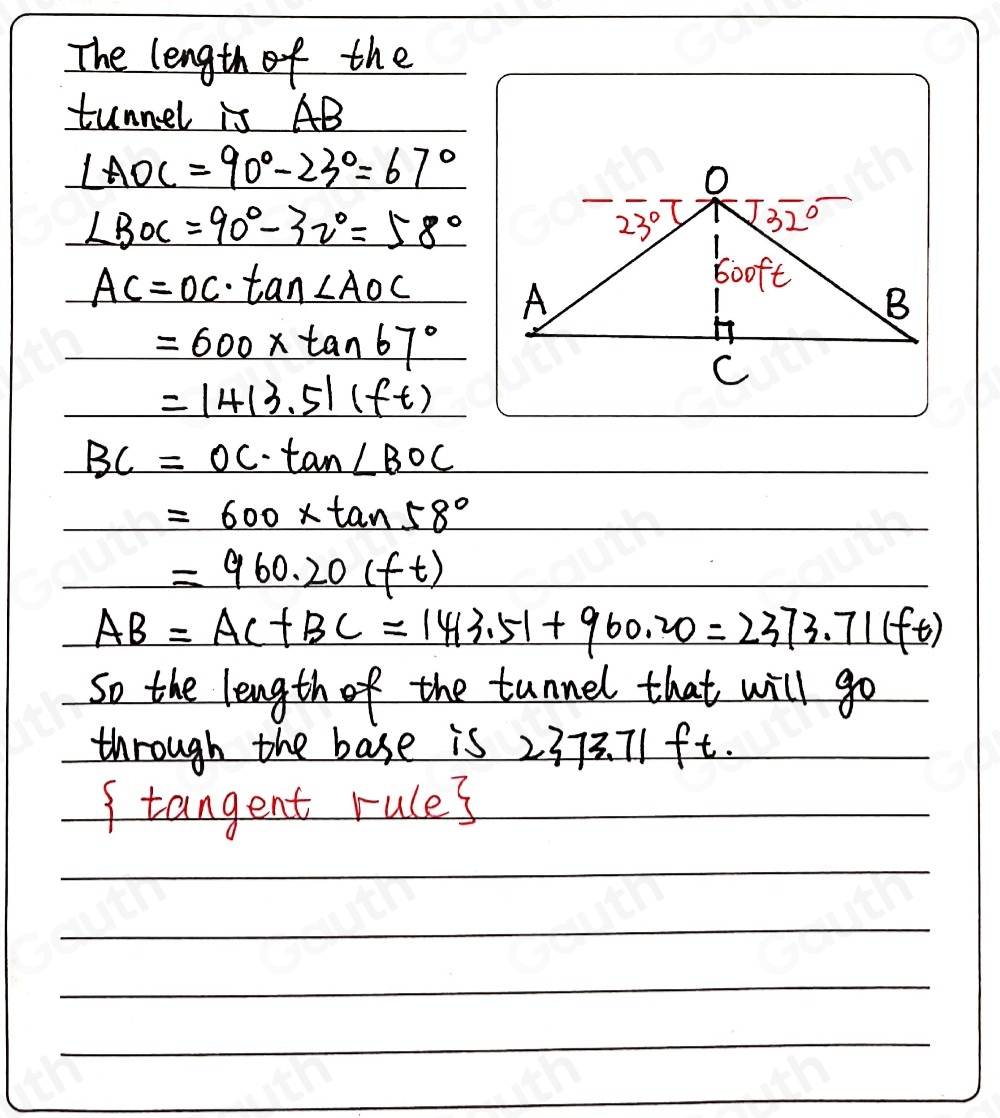 The length of the
tunnel is AB
∠AOC = 90° - 23° = 67°
∠BOC = 90° - 32° = 58°
AC = OC · tan ∠AOC
= 600 × tan 67°
= 1413.51 (ft)
BC = OC · tan ∠BOC
= 600 × tan 58°
= 960.20 (ft)
AB = AC + BC = 1413.51 + 960.20 = 2373.71 (ft)
So the length of the tunnel that will go
through the base is 2373.71 ft.
{ tangent rule }
O
23° 32°
600ft
A B
C
Gauth